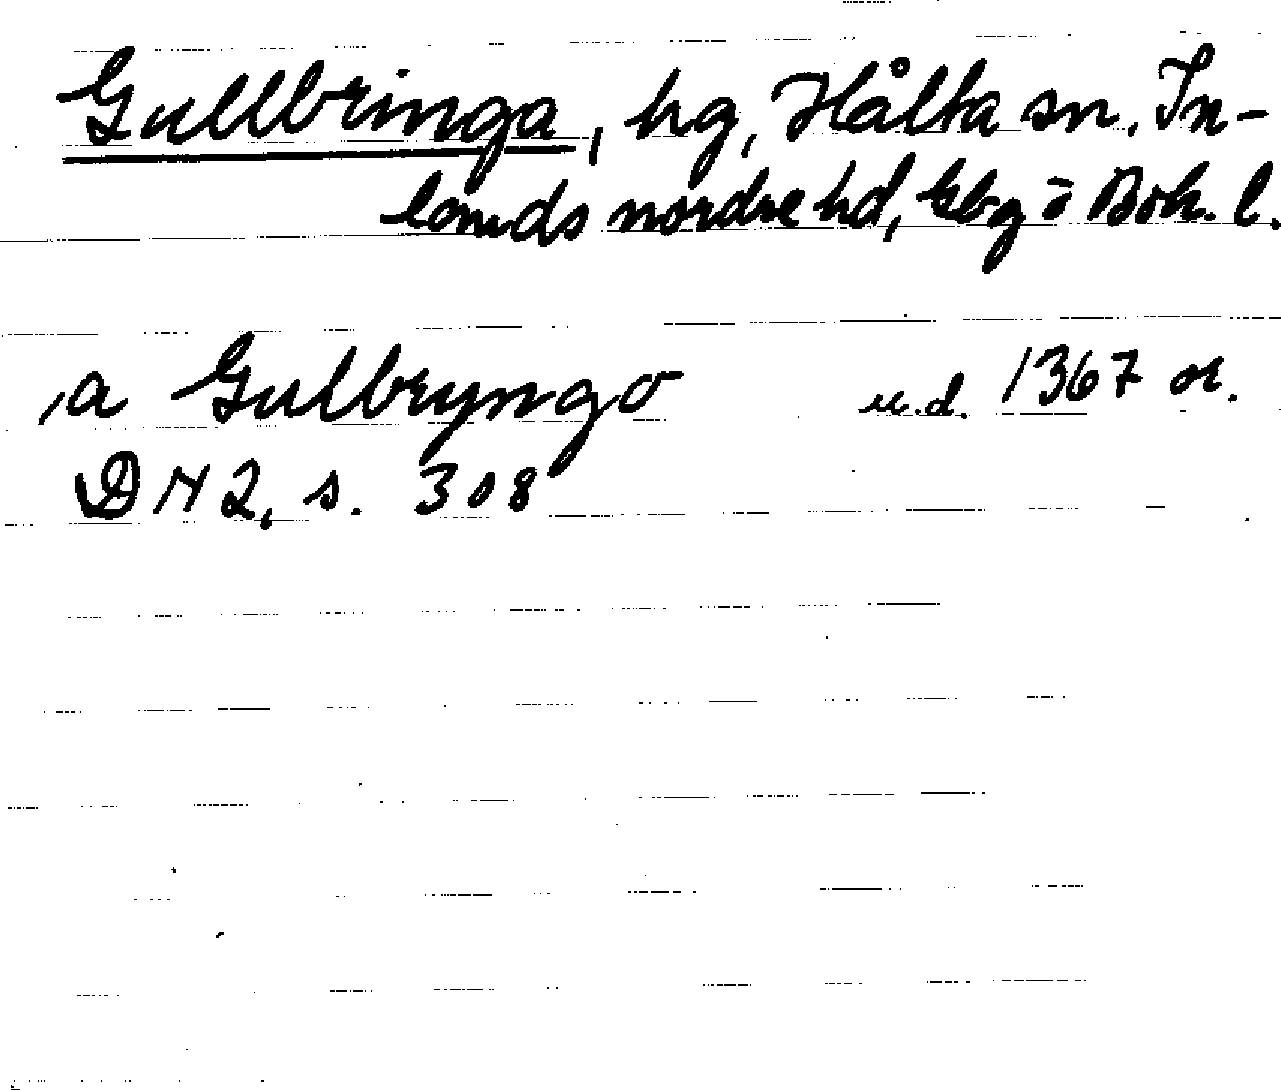 Gullbringa, hg, Hålta sn. In-
lands nordre hd, Gbg o Boh. l.
,a Gulbryngo u.d. 1367 or.
DN 2, s. 308